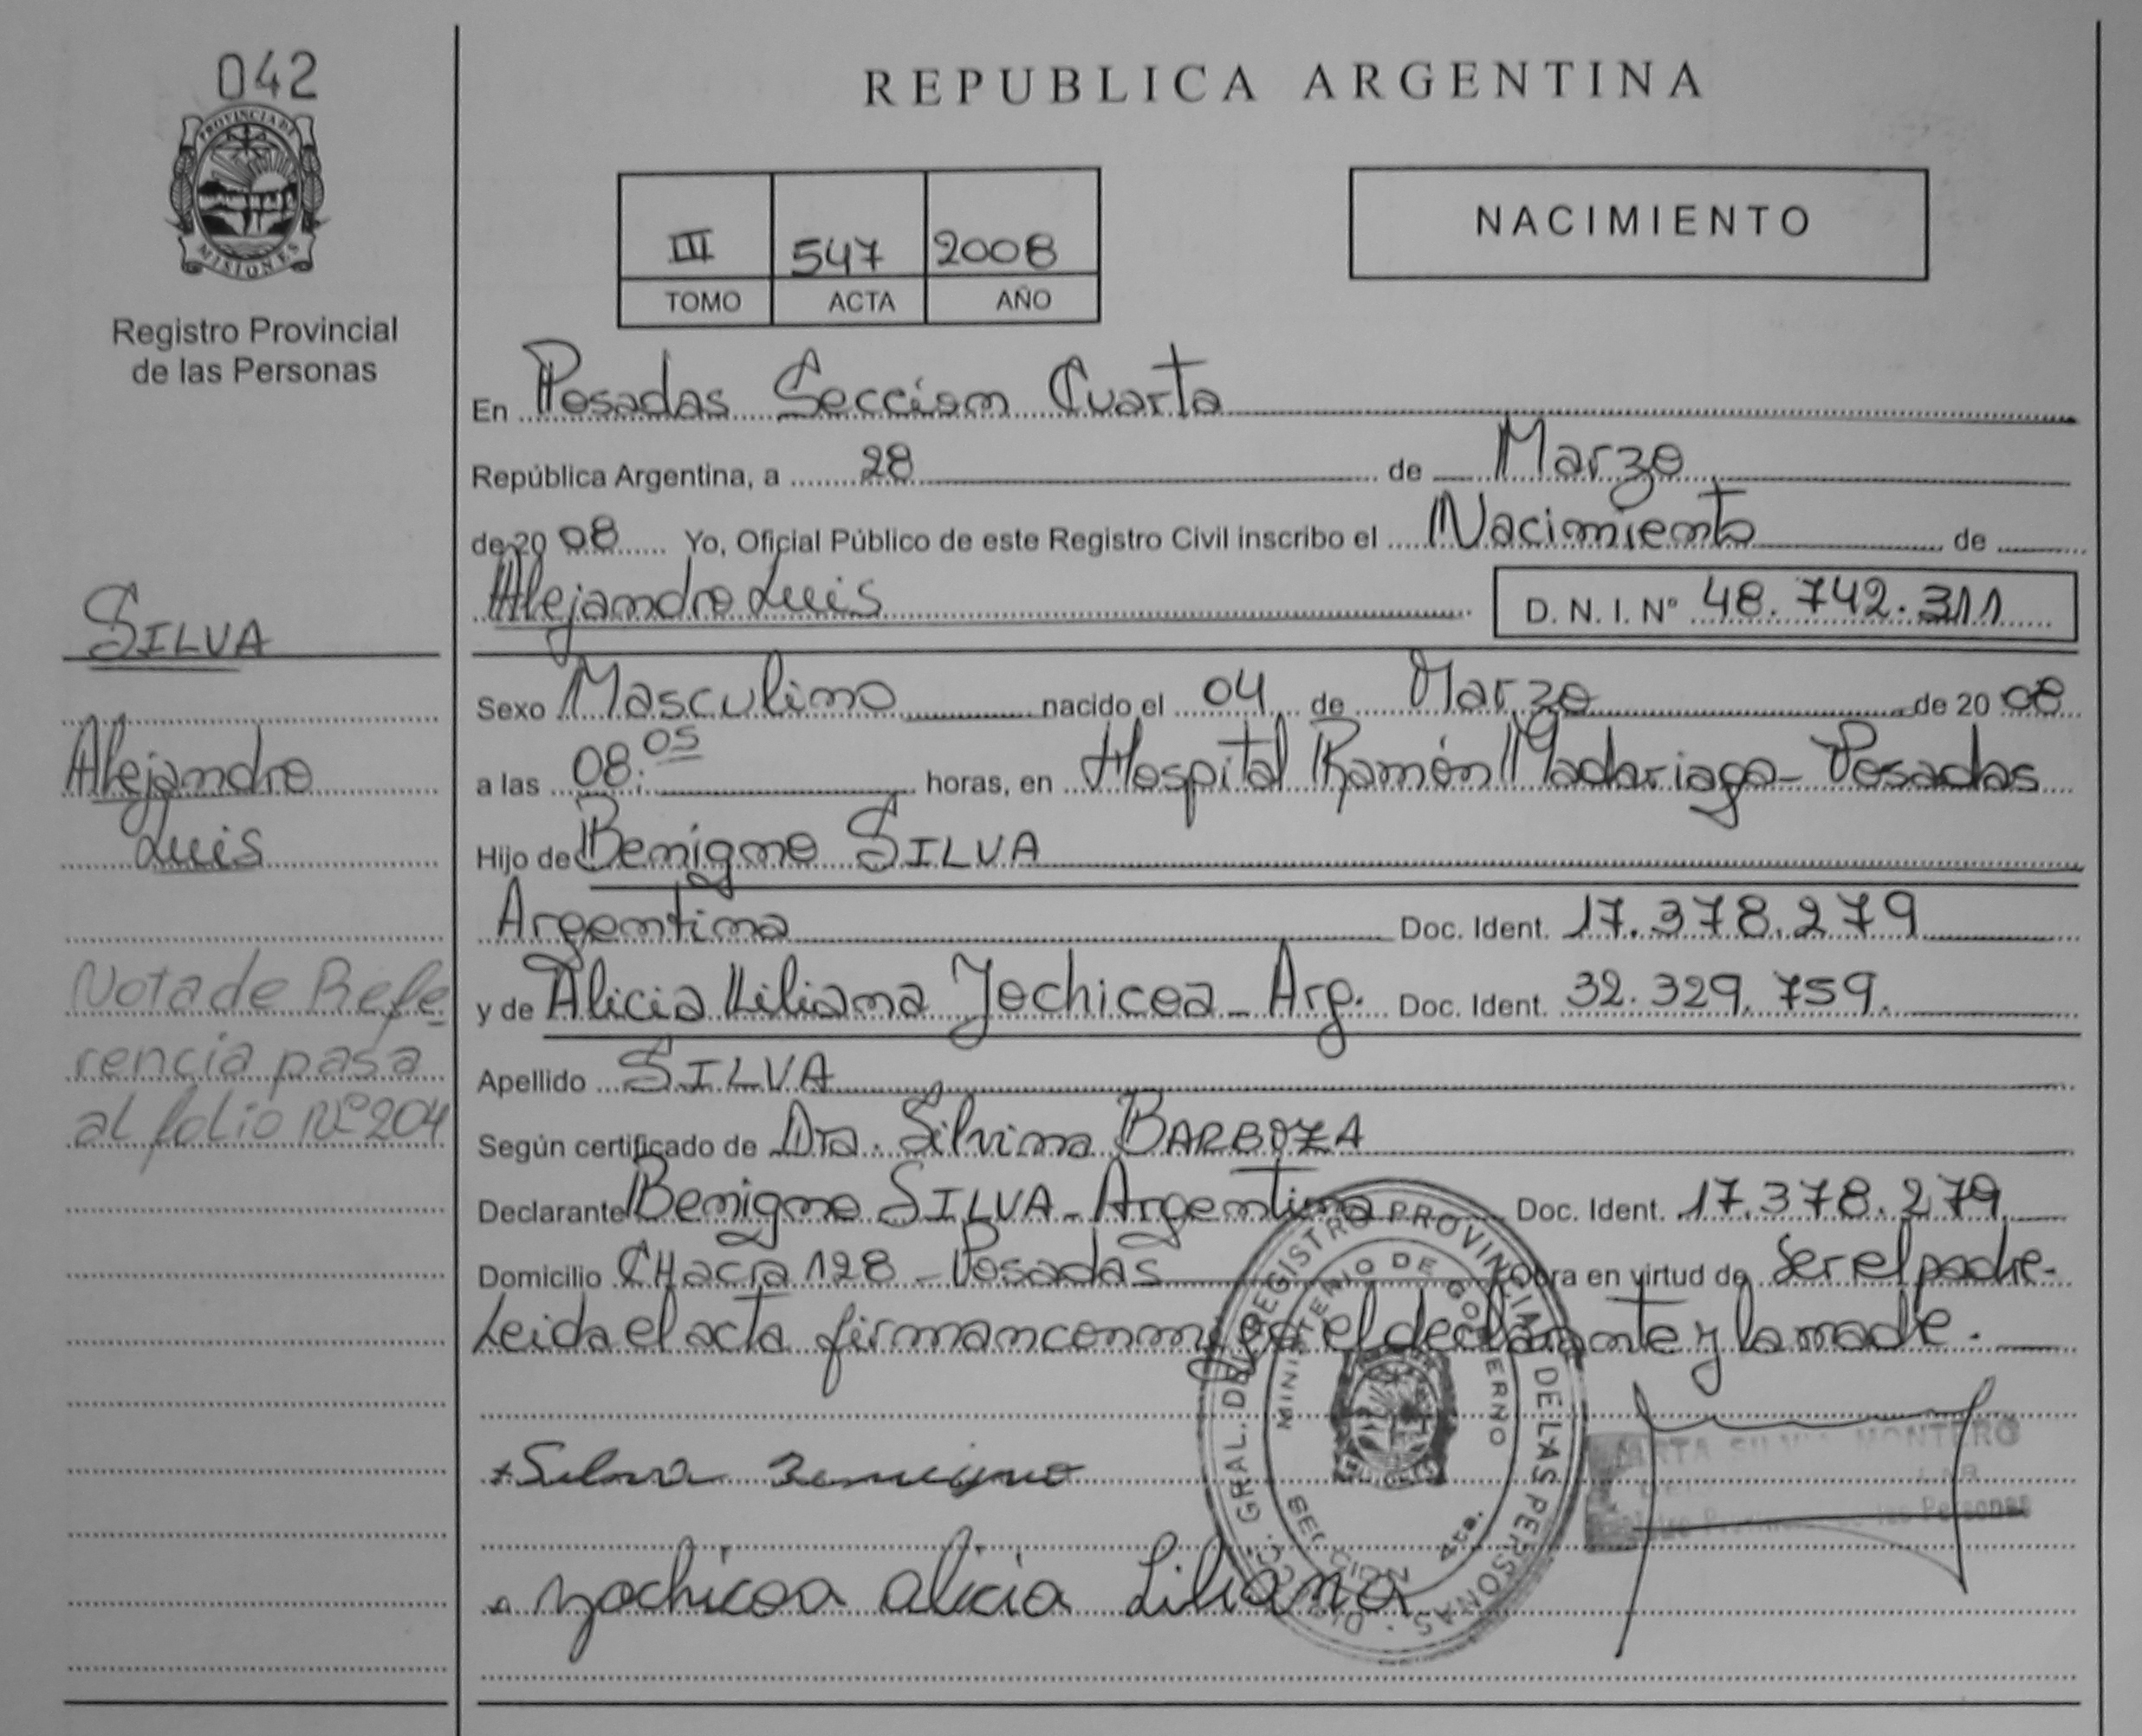 042
PROVINCIA DE
MISIONES
Registro Provincial
de las Personas
SILVA
Alejandro
Luis
Nota de Refe
rencia pasa
al folio Nº 204
REPUBLICA ARGENTINA
III 547 2008
TOMO ACTA AÑO
NACIMIENTO
En Posadas Seccion Cuarta
República Argentina, a 28 de Marzo
de 20 08 Yo, Oficial Público de este Registro Civil inscribo el Nacimiento de
Alejandro Luis D. N. I. Nº 48.742.311
Sexo Masculino nacido el 04 de Marzo de 20 08
a las 08:05 horas, en Hospital Ramón Madariaga - Posadas
Hijo de Benigno SILVA
Argentina Doc. Ident. 17.378.279
y de Alicia Liliana Yochicoa - Arg. Doc. Ident. 32.329.759.
Apellido SILVA
Según certificado de Dra. Silvina BARBOZA
Declarante Benigno SILVA - Argentina Doc. Ident. 17.378.279
Domicilio CHacra 128 - Posadas Obra en virtud de Ser el padre.
Leida el acta firman conmigo el declarante y la madre.
Silva Benigno
Yochicoa alicia Liliana
GRAL. DEL REGISTRO PROVINCIAL DE LAS PERSONAS
MINISTERIO DE GOBIERNO
SECCION 4ta.
SILVIA MONTERO
las Personas